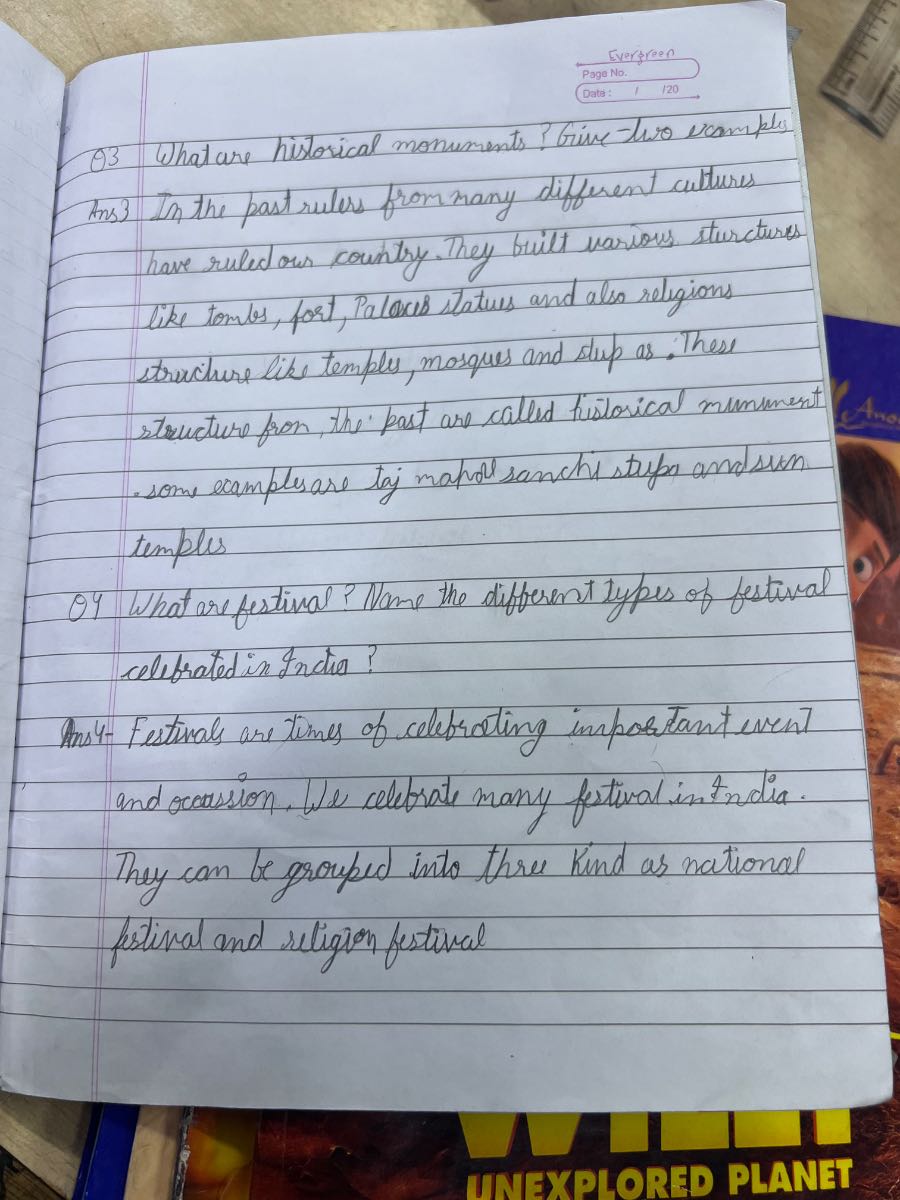 Evergreen
Page No.
Date : / /20
Q3 What are historical monuments ? Give two examples
Ans3 In the past rulers from many different cultures
have ruled our country. They built various sturctures
like tombs, fort, Palaces statues and also religions
structure like temples, mosques and stup as. These
structure from, the past are called historical munument
. some examples are taj mahall sanchi stupa and sun
temples
Q4 What are festival ? Name the different types of festival
celebrated in India ?
Ans4- Festivals are times of celebrating important event
and occassion. We celebrate many festival in India.
They can be grouped into three Kind as national
festival and religion festival
UNEXPLORED PLANET